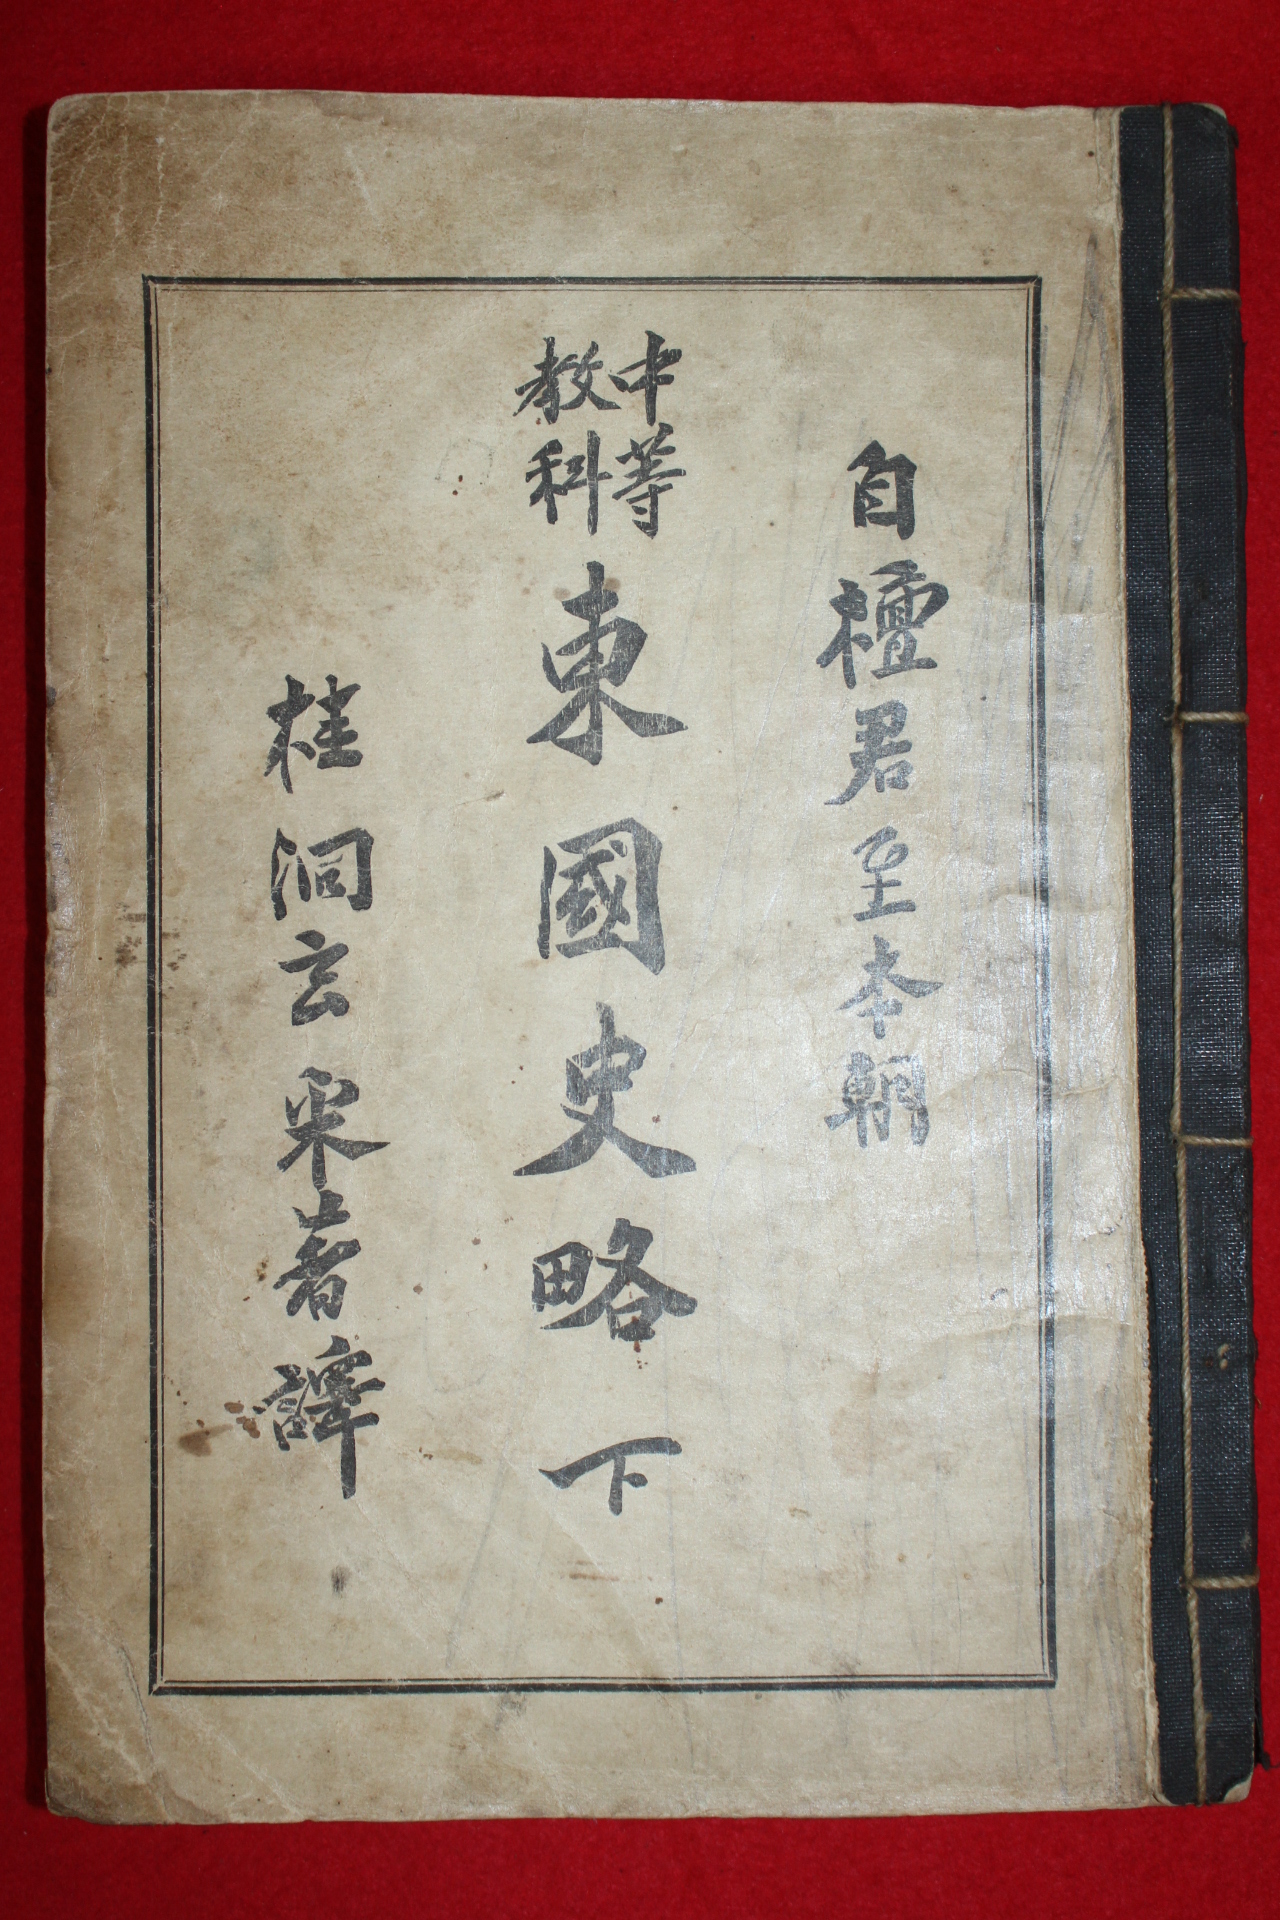 自檀君至本朝
中等
教科
東國史略下
桂洞玄采著譯